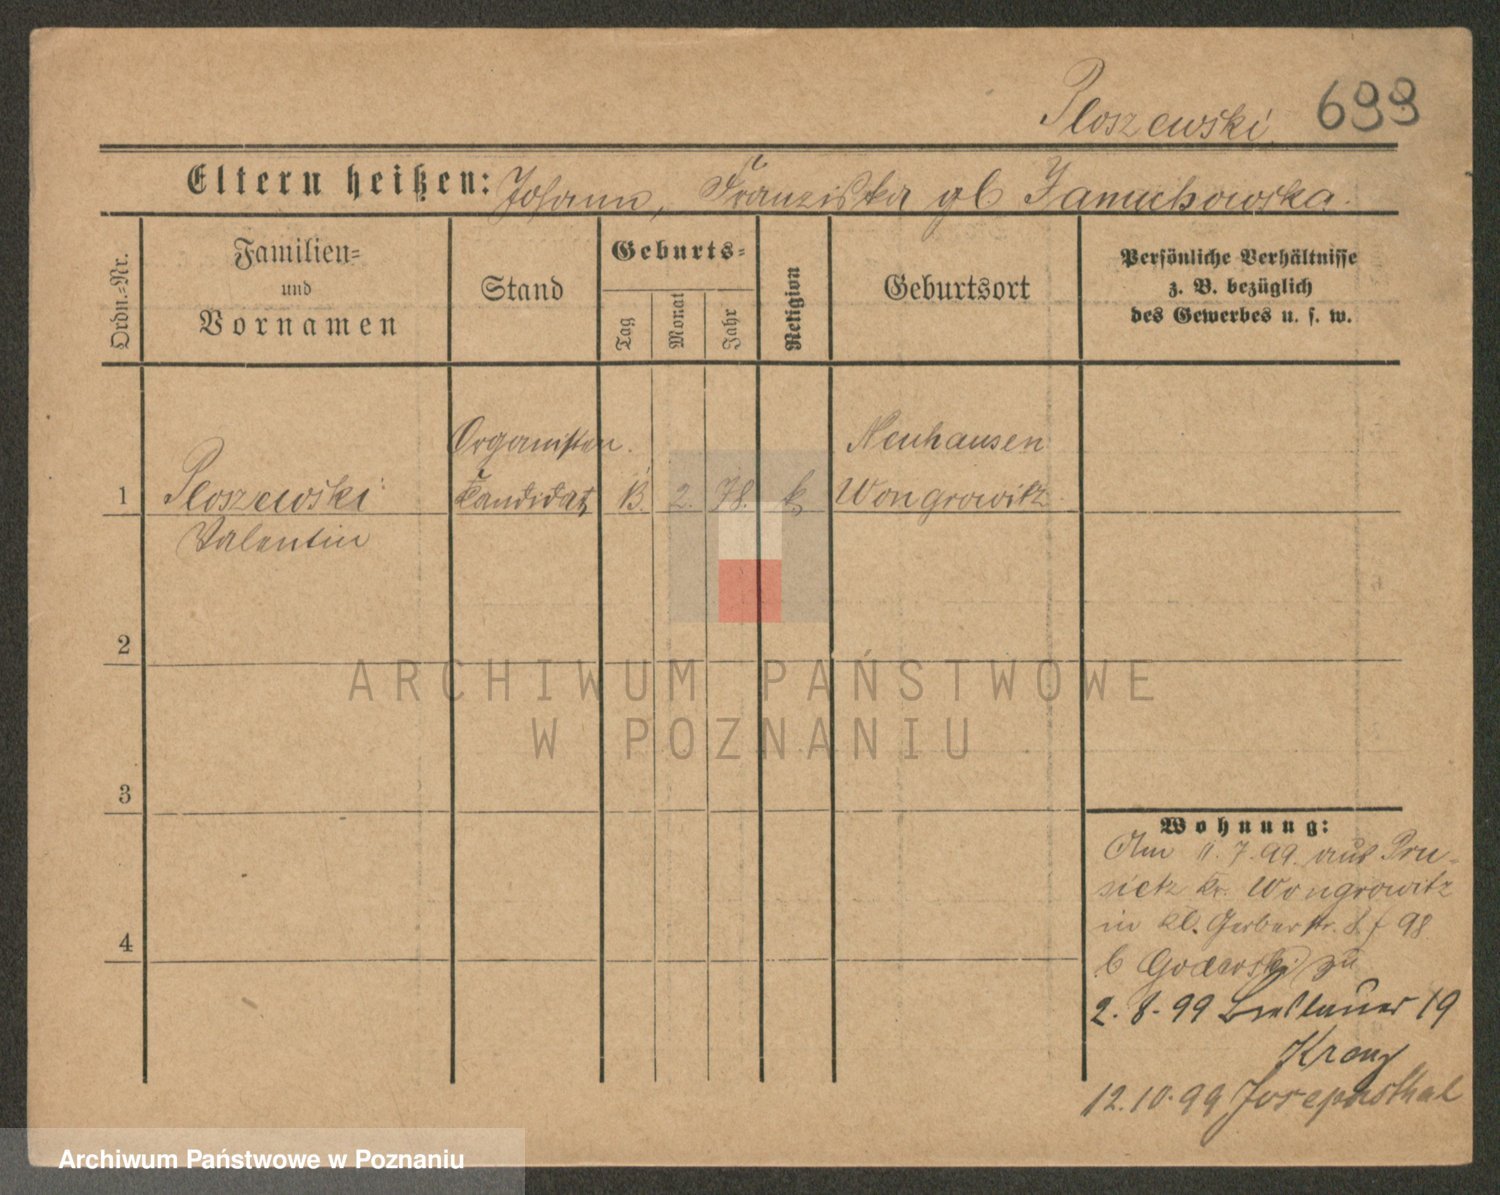 Ploszewski 699
Eltern heißen: Johann, Franziska gb Januchowska.
Ordn.-Nr.
Familien-
und
Vornamen
Stand
Geburts-
Tag
Monat
Jahr
Religion
Geburtsort
Persönliche Verhältnisse
z. B. bezüglich
des Gewerbes u. s. w.
Organisten Neuhausen
1 Ploszewski Kandidat 13. 2. 78. k Wongrowitz
Valentin
2
ARCHIWUM PAŃSTWOWE
W POZNANIU
3
Wohnung:
Am 11.7.99. aus Pru-
sietz Kr. Wongrowitz
in Kl. Gerberstr. 8 f 98
b zu
2.8.99 Breslauer 19
12.10.99 Josephsthal
4
Archiwum Państwowe w Poznaniu